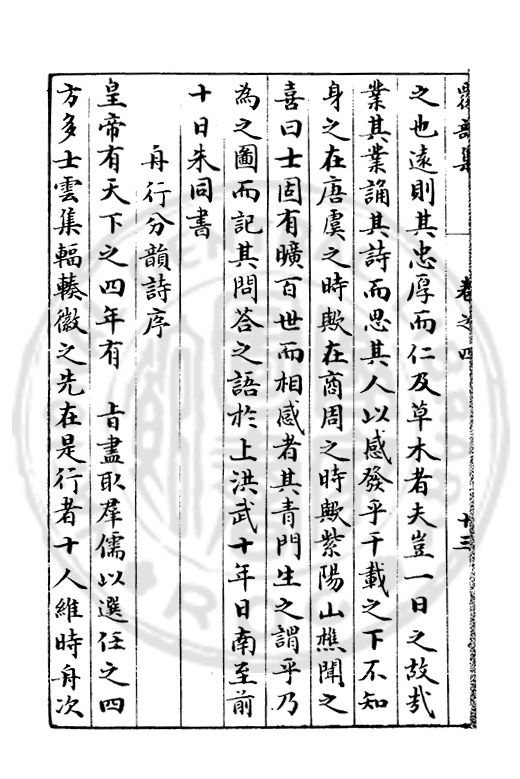 覆瓿集 卷之四 十三
之也遠則其忠厚而仁及草木者夫豈一日之故哉
業其業誦其詩而思其人以感發乎千載之下不知
身之在唐虞之時歟在商周之時歟紫陽山樵聞之
喜曰士固有曠百世而相感者其青門生之謂乎乃
為之圖而記其問答之語於上洪武十年日南至前
十日朱同書
舟行分韻詩序
皇帝有天下之四年有 旨盡取羣儒以選任之四
方多士雲集輻輳徽之先在是行者十人維時舟次